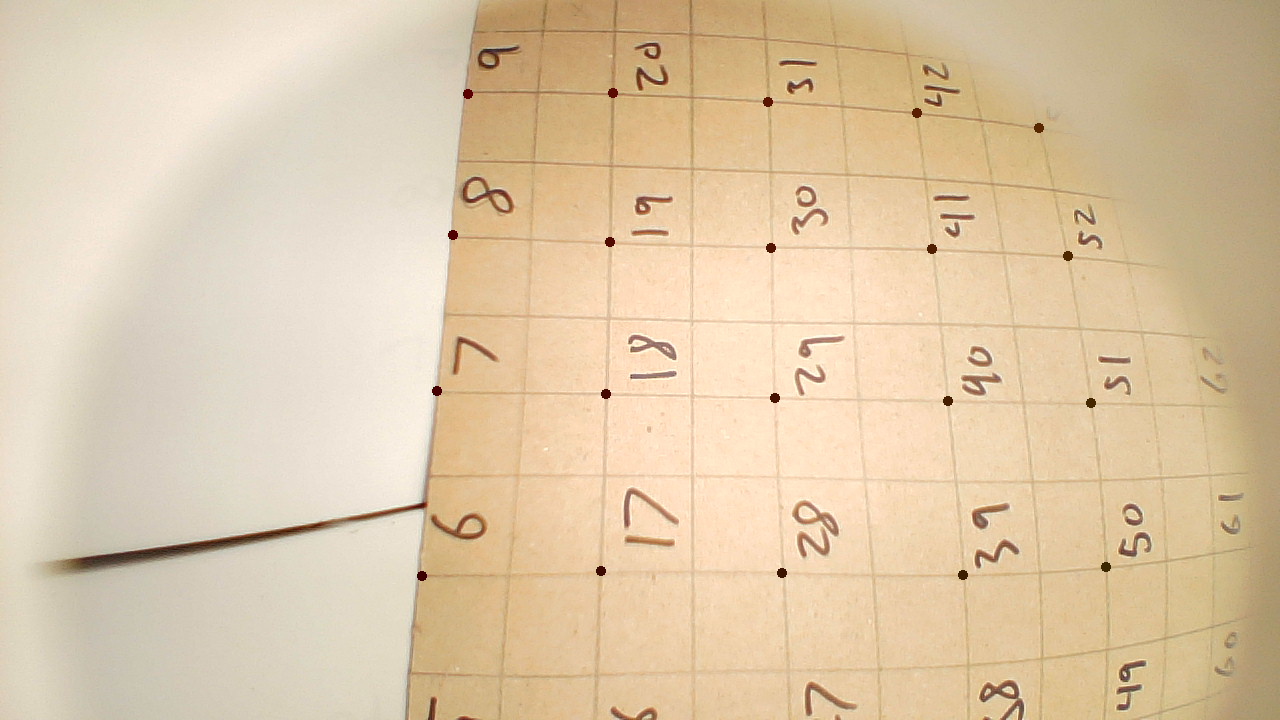 9 20 31 42
8 19 30 41 52
7 18 29 40 51 62
6 17 28 39 50 61
49 60